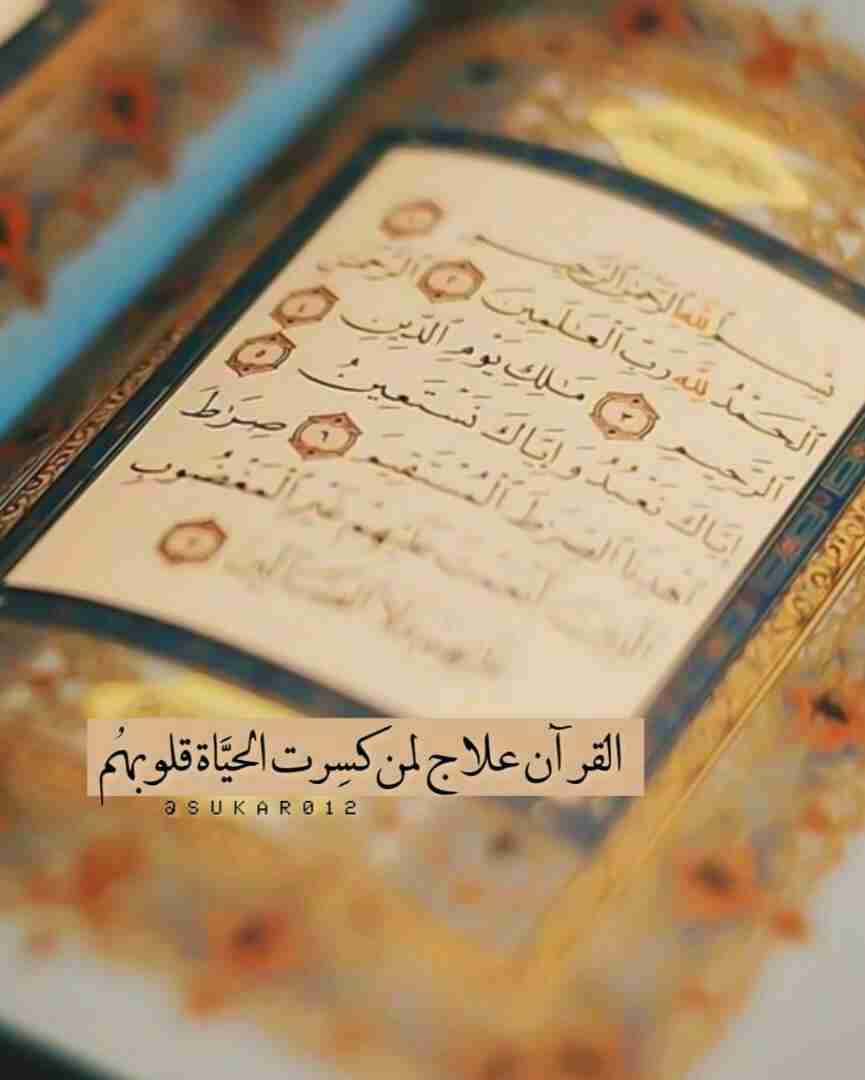 بِسۡمِ ٱللَّهِ ٱلرَّحۡمَٰنِ ٱلرَّحِيمِ ١
ٱلۡحَمۡدُ لِلَّهِ رَبِّ ٱلۡعَٰلَمِينَ ٢ ٱلرَّحۡمَٰنِ
ٱلرَّحِيمِ ٣ مَٰلِكِ يَوۡمِ ٱلدِّينِ ٤
إِيَّاكَ نَعۡبُدُ وَإِيَّاكَ نَسۡتَعِينُ ٥
ٱهۡدِنَا ٱلصِّرَٰطَ ٱلۡمُسۡتَقِيمَ ٦ صِرَٰطَ
ٱلَّذِينَ أَنۡعَمۡتَ عَلَيۡهِمۡ غَيۡرِ ٱلۡمَغۡضُوبِ
عَلَيۡهِمۡ وَلَا ٱلضَّآلِّينَ ٧
القرآن علاج لمن كسِرت الحيَّاة قلوبهُم
@SUKAR012